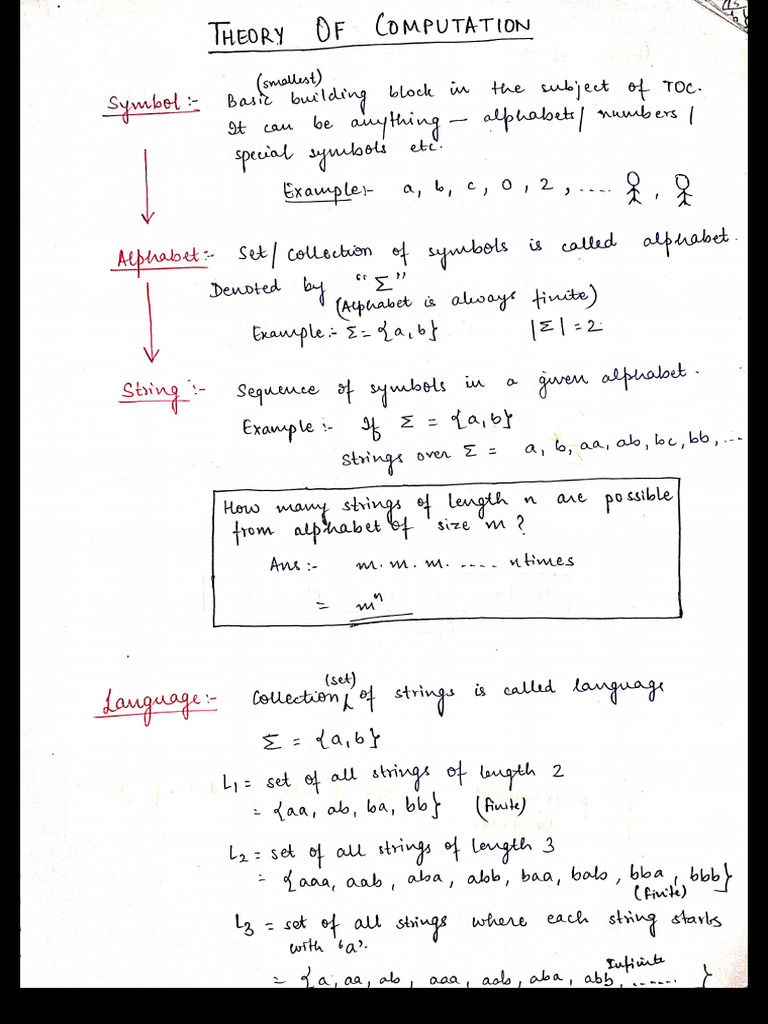 THEORY OF COMPUTATION
(smallest)
Symbol:- Basic building block in the subject of TOC.
It can be anything — alphabets/ numbers/
special symbols etc.
Example:- a, b, c, 0, 2, ....  ,
Alphabet:- Set/ collection of symbols is called alphabet.
Denoted by "Σ"
(Alphabet is always finite)
Example:- Σ = {a,b} |Σ| = 2.
String:- Sequence of symbols in a given alphabet.
Example:- If Σ = {a,b}
Strings over Σ = a, b, aa, ab, bc, bb, ...
How many strings of length n are possible
from alphabet of size m?
Ans:- m. m. m. ..... n times
= mⁿ
(set)
Language:- Collection of strings is called language
Σ = {a,b}
L₁ = set of all strings of length 2
= {aa, ab, ba, bb} (finite)
L₂ = set of all strings of length 3
= {aaa, aab, aba, abb, baa, bab, bba, bbb}
(finite)
L₃ = set of all strings where each string starts
with 'a'.
Infinite
= {a, aa, ab, aaa, aab, aba, abb, ....... }